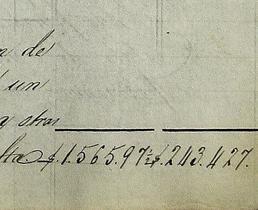 de
un
y otras
lta $.1.565.97½ $.243.427.